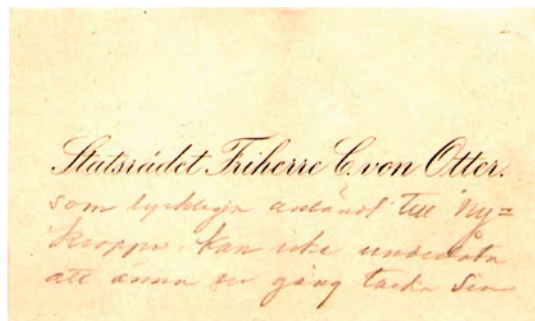 Statsrådet Friherre C. von Otter.
som lyckligen anländt till Ny=
kroppa, kan icke underlåta
att ännu en gång tacka Din